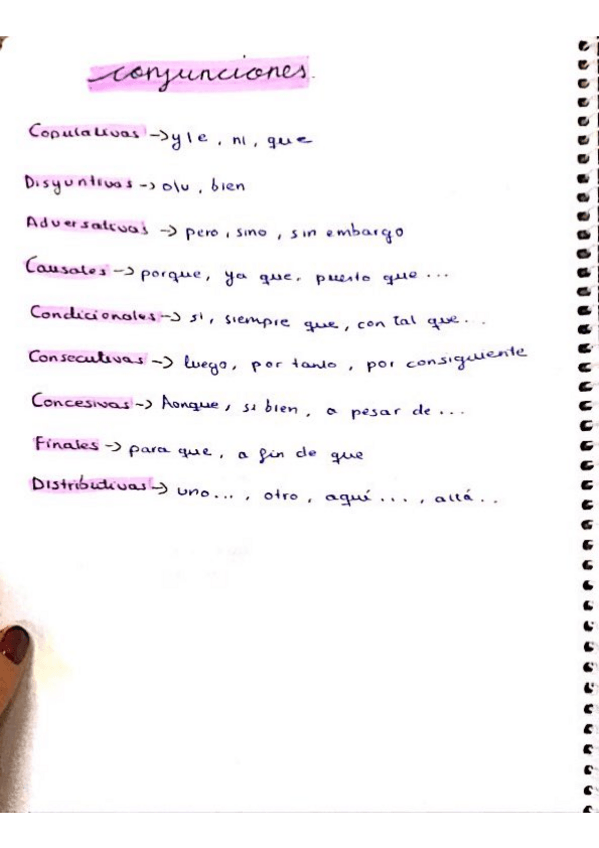 conjunciones.
Copulativas -> y/e, ni, que
Disyuntivas -> o/u, bien
Adversativas -> pero, sino, sin embargo
Causales -> porque, ya que, puesto que ...
Condicionales -> si, siempre que, con tal que...
Consecutivas -> luego, por tanto, por consiguiente
Concesivas -> Aonque, si bien, a pesar de ...
Finales -> para que, a fin de que
Distributivas -> uno..., otro, aquí ..., allá..